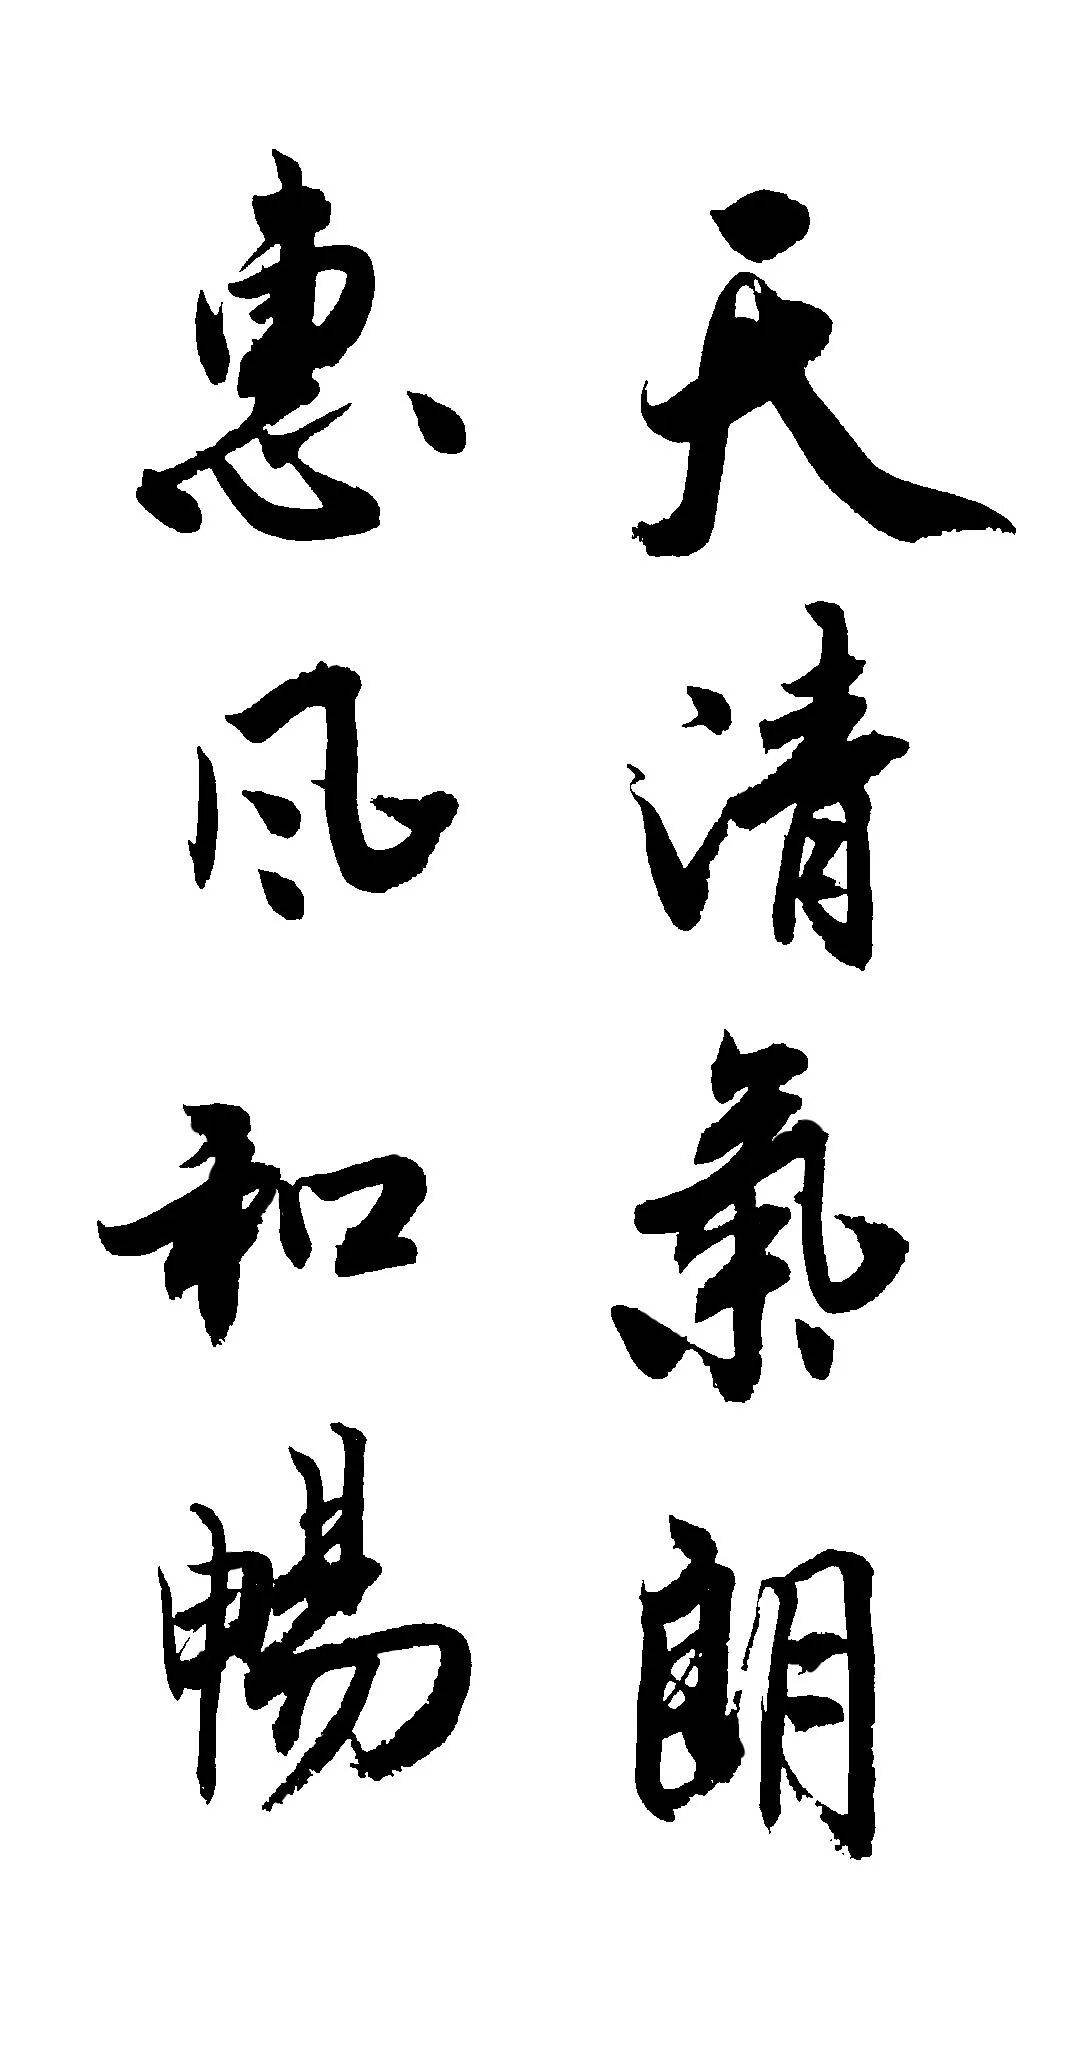 天清氣朗
惠风和暢